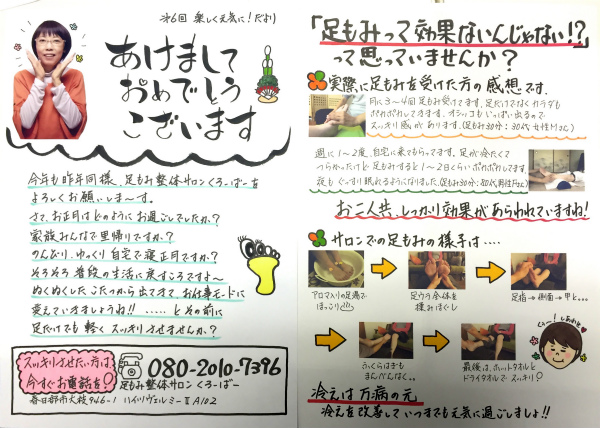 第6回 楽しく元気に!だより
あけまして
おめでとう
ございます
今年も昨年同様、足もみ整体サロンくろーばーを
よろしくお願いしま〜す。
さて、お正月はどのようにお過ごしでしたか?
家族みんなで里帰りですか?
のんびり、ゆっくり自宅で寝正月ですか?
そろそろ普段の生活に戻すころですよ〜
ぬくぬくしたこたつから出てきて、お仕事モードに
変えていきましょうね!! ……とその前に
足だけでも軽くスッキリさせませんか?
スッキリさせたい方は、
今すぐお電話を!
080-2010-7396
足もみ整体サロンくろーばー
春日部市大枝946-1 ハイツヴェルミーⅡA102
「足もみって効果ないんじゃない!?」
って思っていませんか?
実際に足もみを受けた方の感想です。
月に3〜4回足もみ受けてます。足だけでなくカラダも
ポカポカしてきます。オシッコもいっぱい出るので
スッキリ感があります。(足もみ30分:30代女性Mさん)
週に1〜2度、自宅に来てもらってます。足が冷たくて
つらかったけど足もみすると1〜2日ぐらいポカポカしてます。
夜もぐっすり眠れるようになりました。(足もみ30分:80代男性Fさん)
お二人共、しっかり効果があらわれていますね!
サロンでの足もみの様子は‥‥
アロマ入りの足湯で
ほっこり
足ウラ全体を
揉みほぐし
足指→側面→甲と…
くぅ〜!しあわせ
ふくらはぎも
まんべんなく‥
最後は、ホットタオルと
ドライタオルでスッキリ!
冷えは万病の元
冷えを改善していつまでも元気に過ごしましょ!!